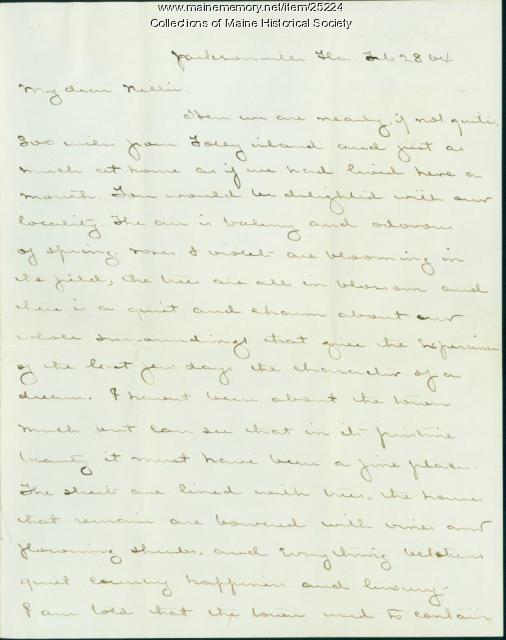 www.mainememory.net/item/25224
Collections of Maine Historical Society
Jacksonville Fla. Feb 28 64
My dear Nellie.
Here we are nearly, if not quite,
300 miles from Folly island and just as
much at home as if we had lived here a
month. You would be delighted with our
locality The air is balmy and odorous
of spring; roses & violets are blooming in
the field, the trees are all in blossom and
there is a quiet and charm about our
whole surroundings that give the experience
of the last few days the character of a
dream. I havent been about the town
much but can see that in its pristine
beauty it must have been a fine place.
The streets are lined with trees, the houses
that remain are bowered with vines and
flowering shrubs, and everything betokens
quiet country happiness and luxury.
I am told that the town used to contain